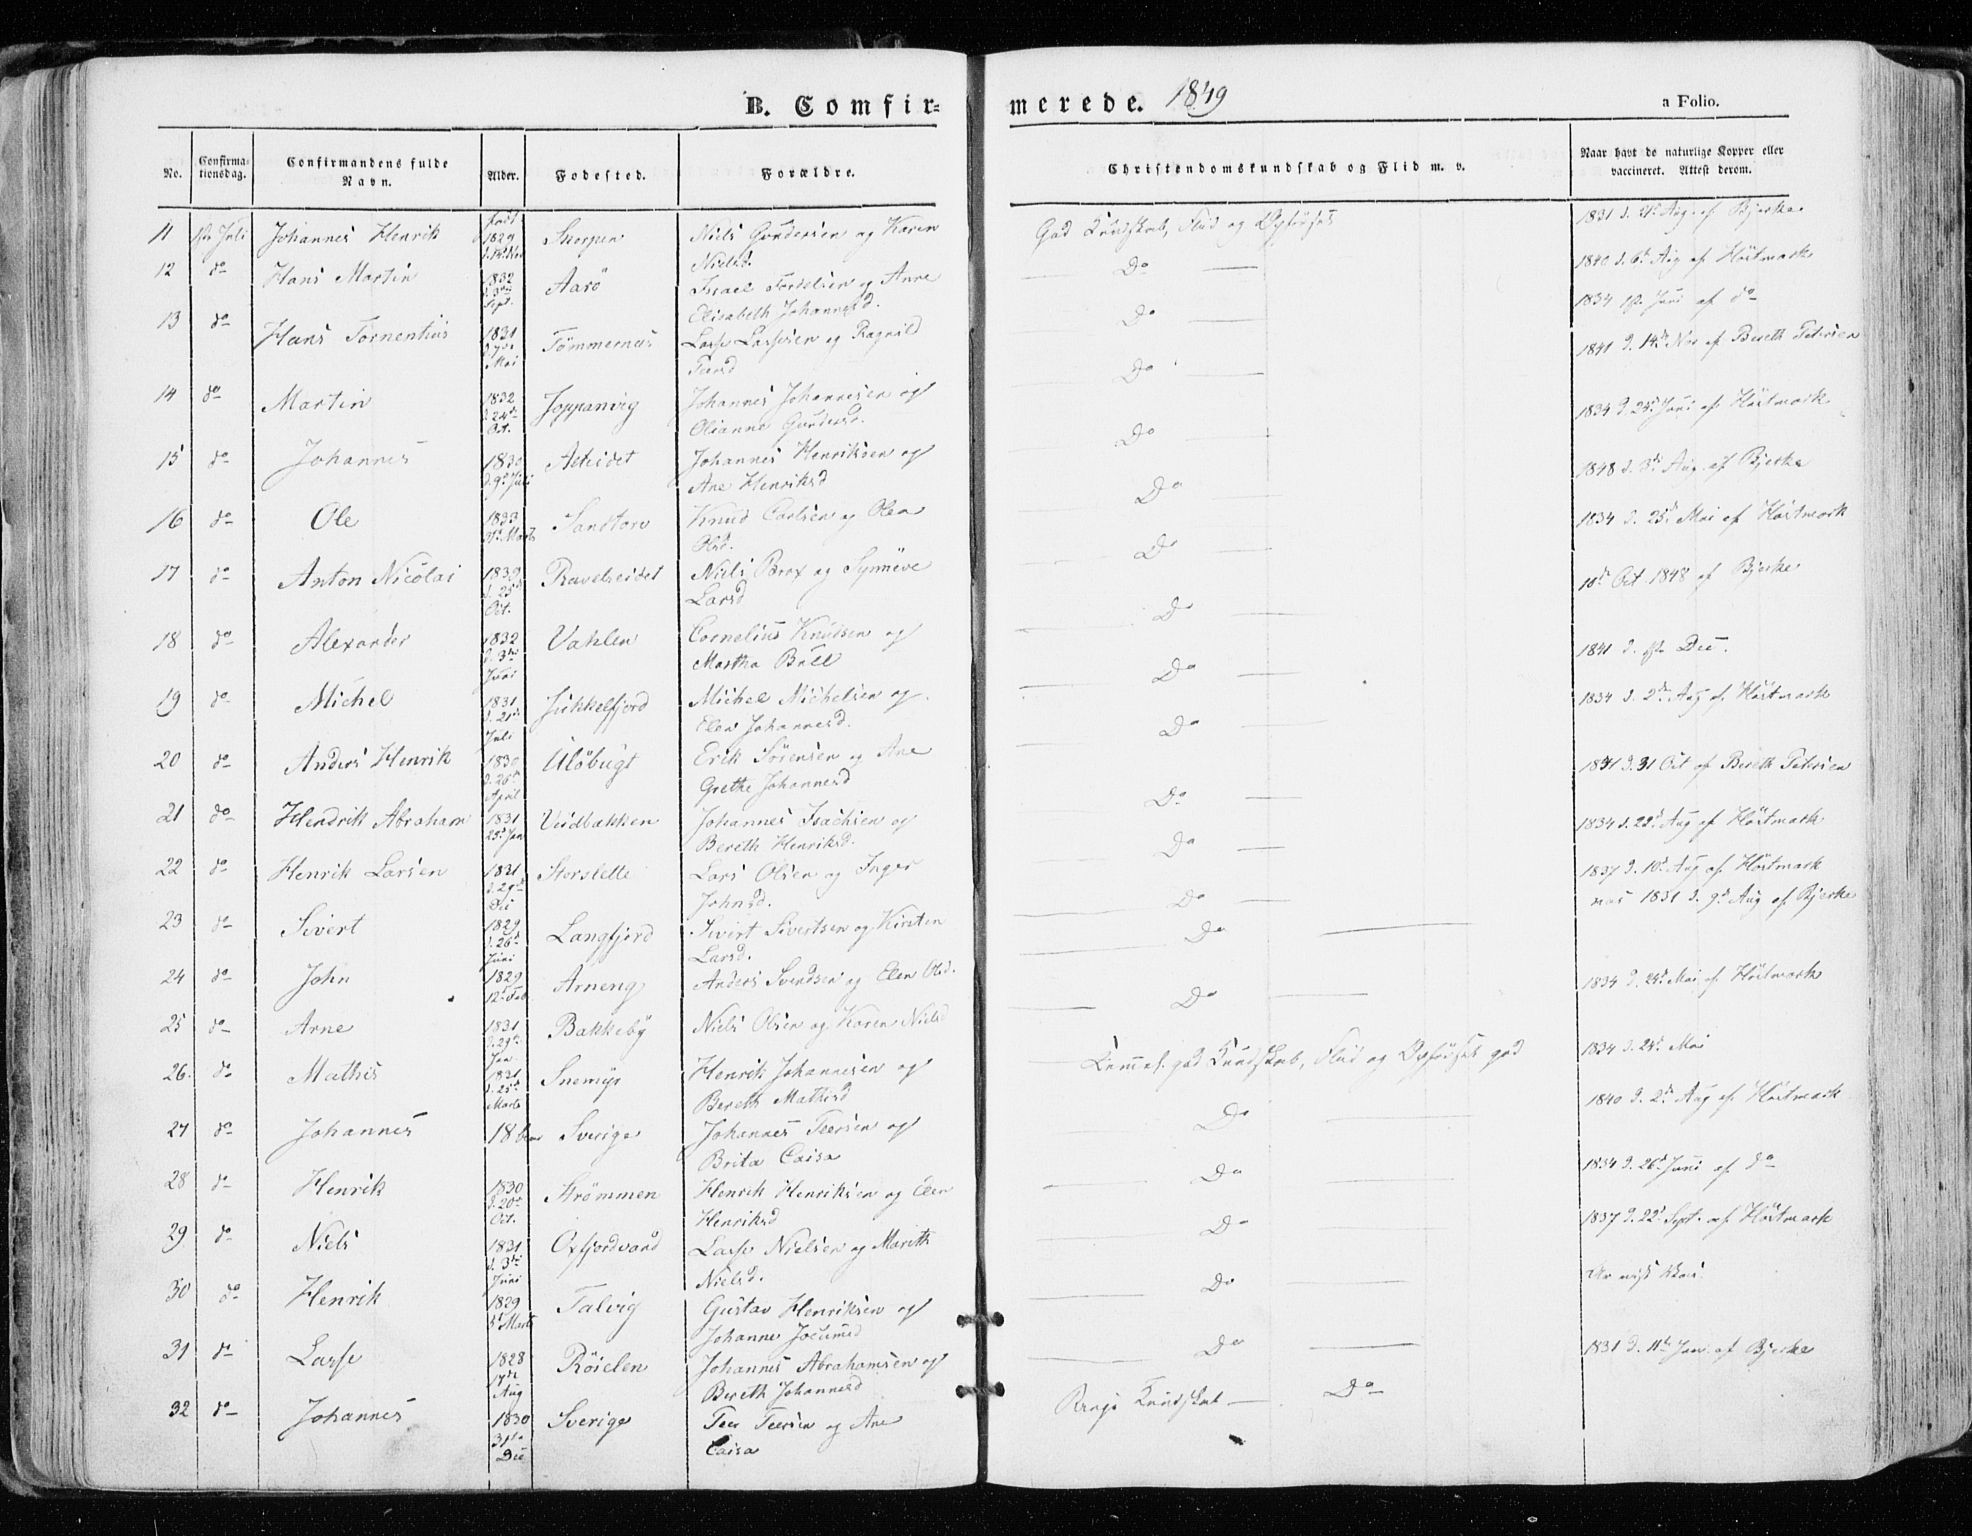 B. Comfir= merede. 1849
a Folio.
No. Confirma=tionsdag. Confirmandens fulde Navn. Alder. Fodested. Forældre. Christendomskundskab og Flid m. v. Naar havt de naturlige Kopper eller vaccineret. Attest derom.
11 1ste Juli Johannes Henrik 1829 Skorpen Niels Gundersen og Karen Nielsd. God Kundskab, Flid og Opførsel 1831 d. 21d Aug. af Bjerke
12 do Hans Martin 1832 d. 3die Sept. Aarö Israel Fredriksen og Anne Elisabeth Johannesd. Do 1840 d. 6t Aug af Höstmark
13 do Hans Tornentius 1831 d. 7de Mai Tömmernes Lasse Lassesen og Ragnild Peersd Do 1834 1st Juni af do
14 do Martin 1832 d. 24de Oct. Joppanvig Johannes Johannesen og Olianne Gundersd. Do 1841 d. 14de Nov af Bereth Petersen
15 do Johannes 1830 d. 9d Juli Alteidet Johannes Henriksen og Ane Henriksd Do 1834 d. 24d Juni af Höstmark
16 do Ole 1833 Marts Sandtorv Knud Carlsen og Olea Olsd. Do 1848 d. 3d Aug. af Bjerke
17 do Anton Nicolai 1832 d. 25de Oct. Ravelseidet Niels Brox og Synneve Larsd Do 1834 d. 25d Mai af Höstmark
18 do Alexander 1832 d. 3die Juni Vahlen Cornelius Knudsen og Martha Bull Do 10d Oct 1848 af Bjerke
19 do Michel 1831 d. 21de Juli Jukkelfjord Michel Michelsen og Elen Johannesd. Do 1841 d. 1ste Dec.
20 do Anders Henrik 1830 d. 26d April Ulöbugt Erik Sörensen og Ane Grethe Johannesd Do 1834 d. 2d Aug af Höstmark
21 do Hendrik Abraham 1831 25d Jan Veidbakken Johannes Isachsen og Bereth Henriksd. Do 1841 d. 31 Oct af Bereth Petersen
22 do Henrik Larsen 1831 d. 29d Dec Storslette Lars Olsen og Inger Johnsd. Do 1834 d. 22d Aug af Höstmark
23 do Sivert 1829 d. 26d Juni Langfjord Sivert Sivertsen og Kirsten Larsd. Do 1837 d. 10d Aug af Höstmark
24 do John 1829 12d Feb Arneng Anders Svendsen og Elen Olsd. Do 1831 d. 9d Aug af Bjerke
25 do Arne 1831 d. 29de Jan Bakkeby Niels Olsen og Karen Nielsd Do 1834 d. 24d Mai af Höstmark
26. do Mathis 1831 d. 25d Marts Snemyr Henrik Johannesen og Bereth Mathisd god Kundskab, Flid og Opførsel god 1834 d. 24d Mai
27 do Johannes 18 Sverige Johannes Peersen og Brita Caisa Do 1840 d. 2d Aug af Höstmark
28 do Henrik 1830 d. 20de Oct. Strömmen Henrik Henriksen og Elen Henriksd Do 1834 d. 26d Juni af do
29 do Niels 1831 d. 3die Juni Oxfjordvand Lasse Nielsen og Marith Nielsd. Do 1837 d. 22d Sept. af Höstmark
30 do Henrik 1829 Marts Talvig Gustav Henriksen og Johanne Do
31 do Lasse 1828 17de Aug Röielen Johannes Abrahamsen og Bereth Johannesd Do 1831 d. 11te Jan. af Bjerke
32 do Johannes 1830 31te Dec Sverige Peer Peersen og Ane Caisa Ringe Kundskab — Do